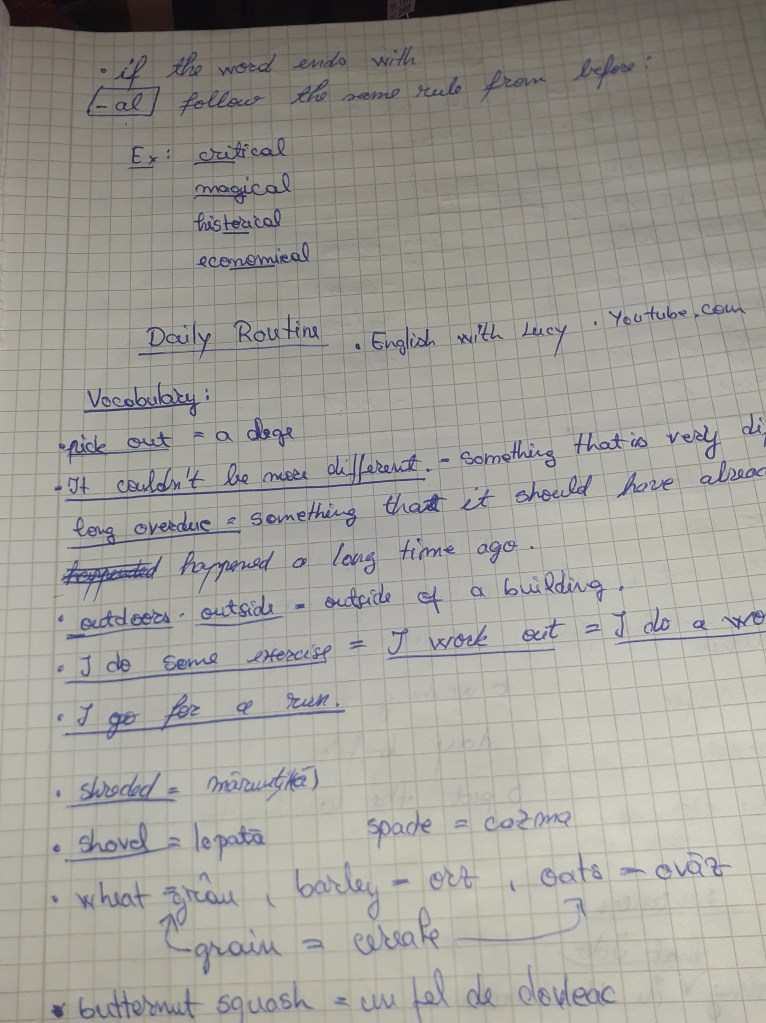 • if the word ends with
[-al] follow the same rule from before:
Ex: critical
magical
histerical
economical
Daily Routine . English with Lucy . Youtube.com
Vocobulary:
• pick out = a alege
- It couldn't be more different. - something that is very di
long overdue = something that it should have alread
happened happened a long time ago.
• outdoors - outside = outside of a building.
• I do some exercise = I work out = I do a wo
• I go for a run.
• shreded = mărunțit(ă)
• shovel = lopată spade = cazma
• wheat = grâu, barley = orz, oats = ovăz
grain = cereale
• butternut squash = un fel de dovleac